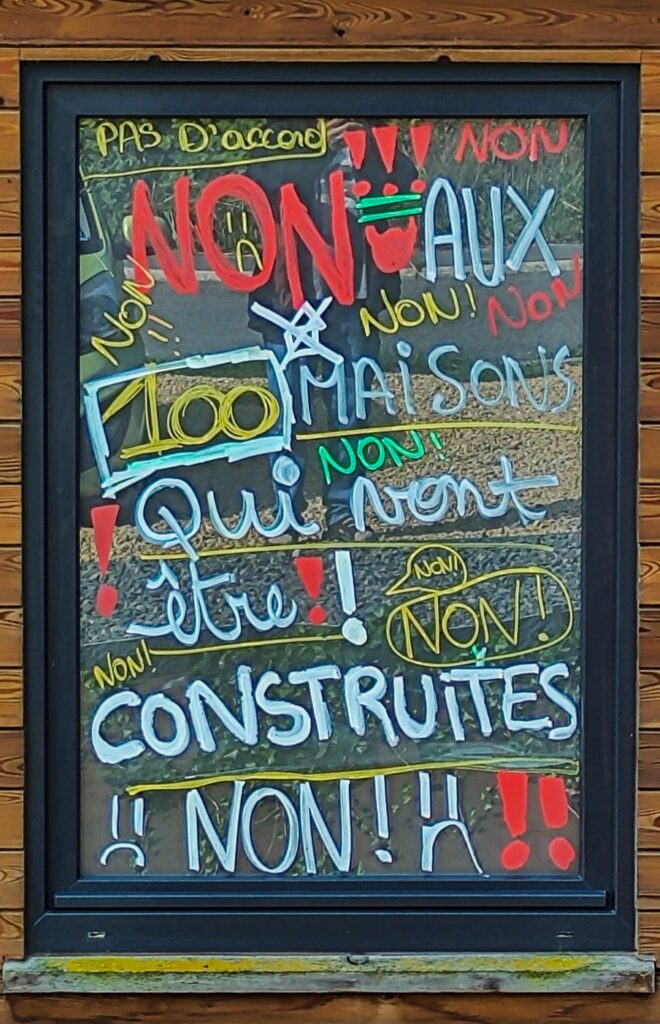 PAS D'accord !!! NON
NON AUX
NON!! NON! NON
100 MAiSONS
NON!
! Qui vont
être! ! NON!
NON!
NON!
CONSTRUiTES
NON! !!